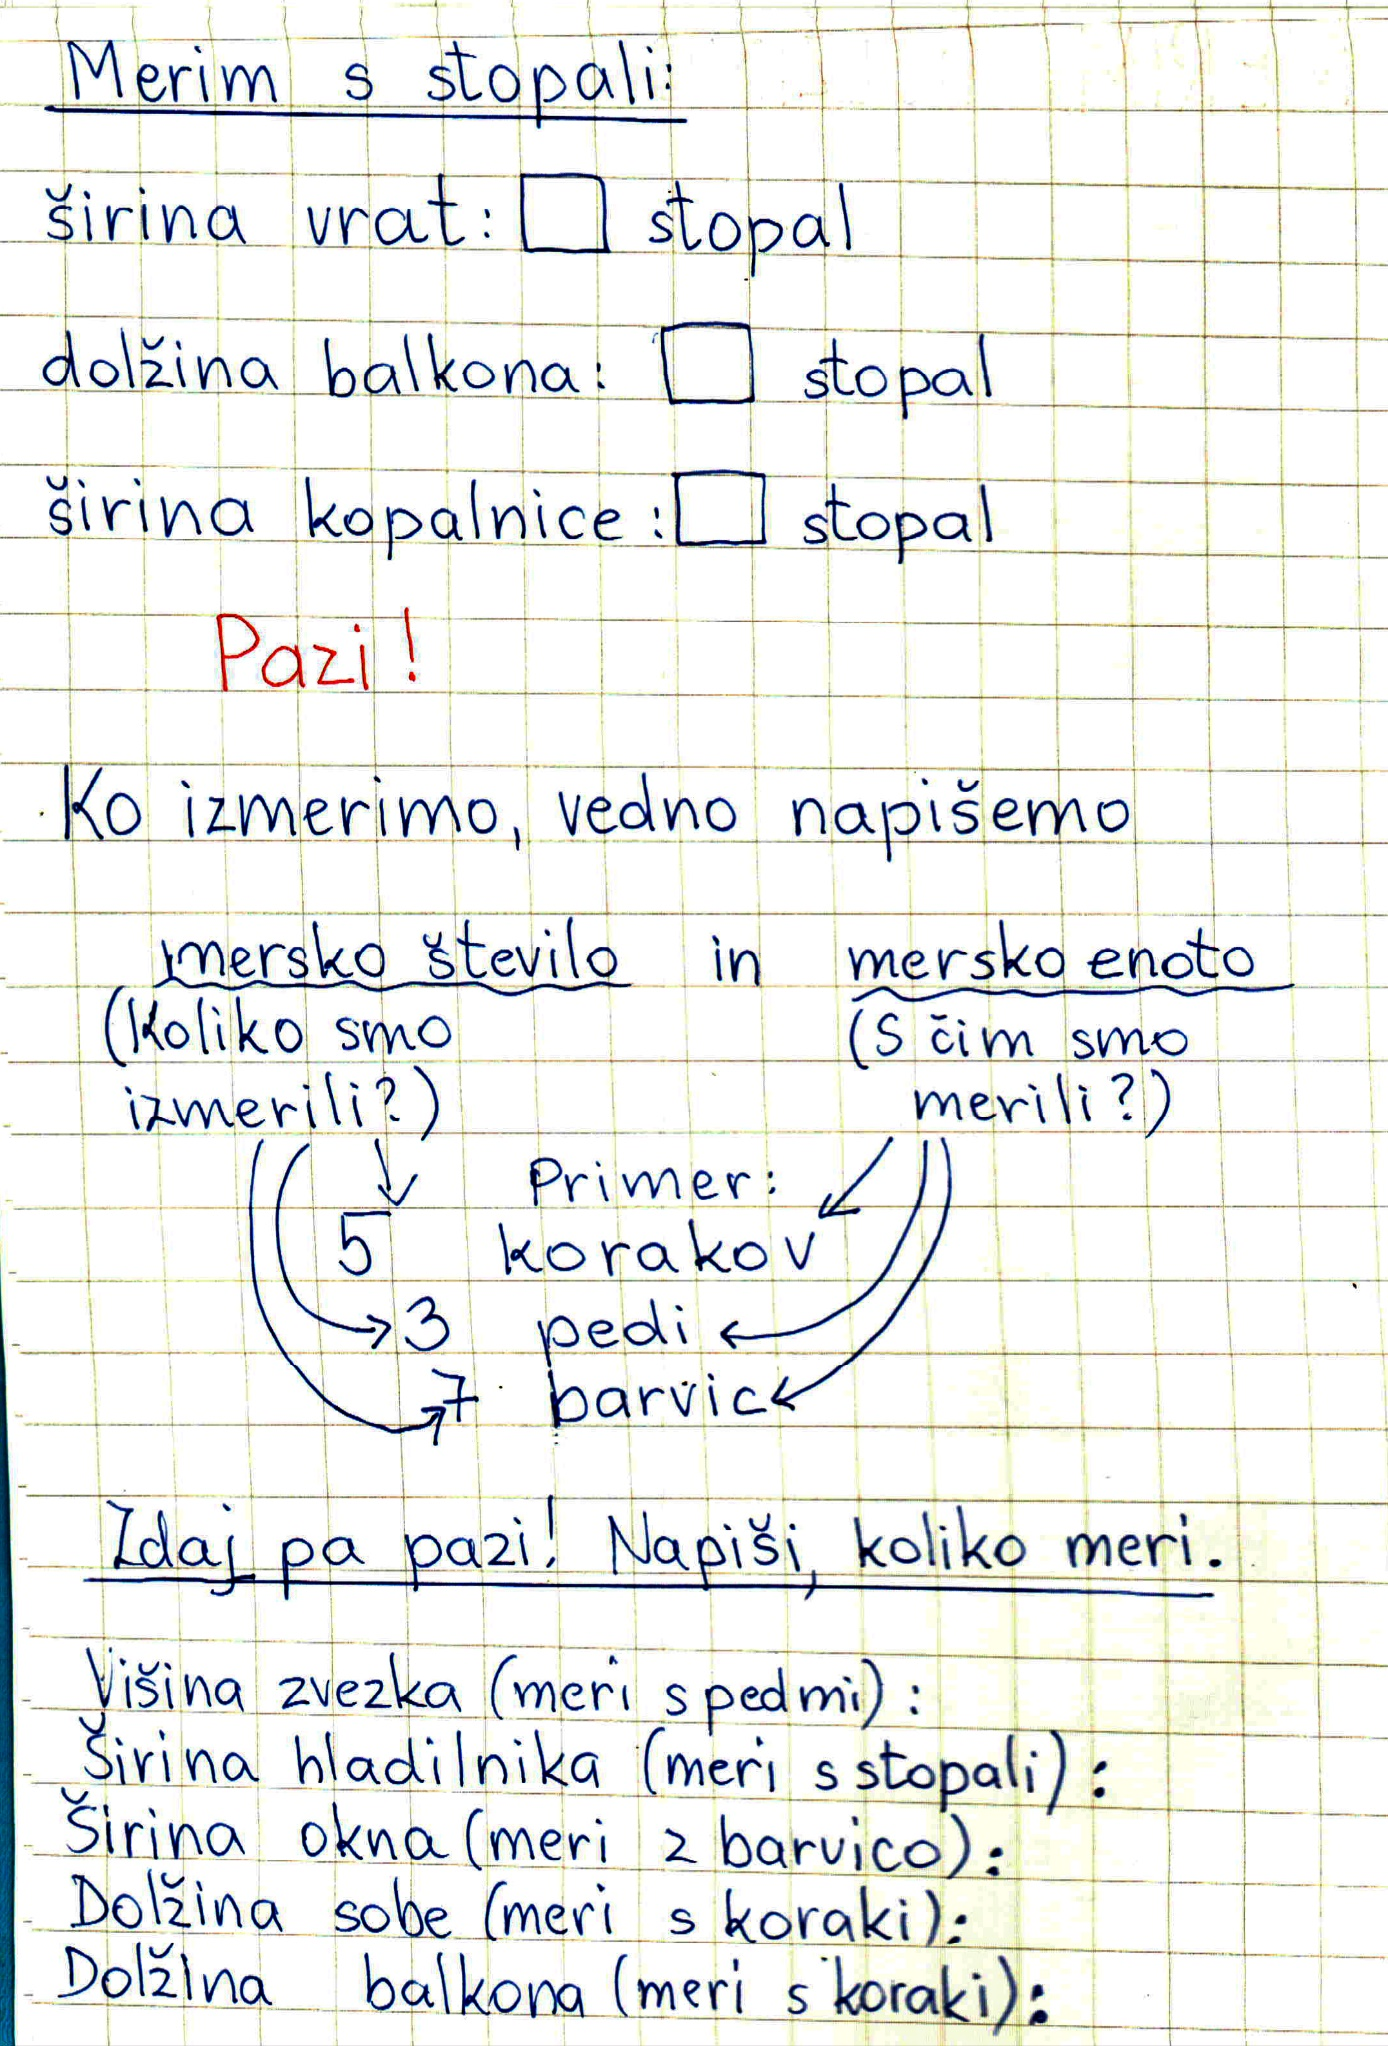 Merim s stopali:
širina vrat: stopal
dolžina balkona: stopal
širina kopalnice: stopal
Pazi!
Ko izmerimo, vedno napišemo
mersko število in mersko enoto
(Koliko smo (S čim smo
izmerili?) merili?)
Primer:
5 korakov
3 pedi
7 barvic
Zdaj pa pazi! Napiši, koliko meri.
Višina zvezka (meri s pedmi):
Širina hladilnika (meri s stopali):
Širina okna (meri z barvico):
Dolžina sobe (meri s koraki):
Dolžina balkona (meri s koraki):